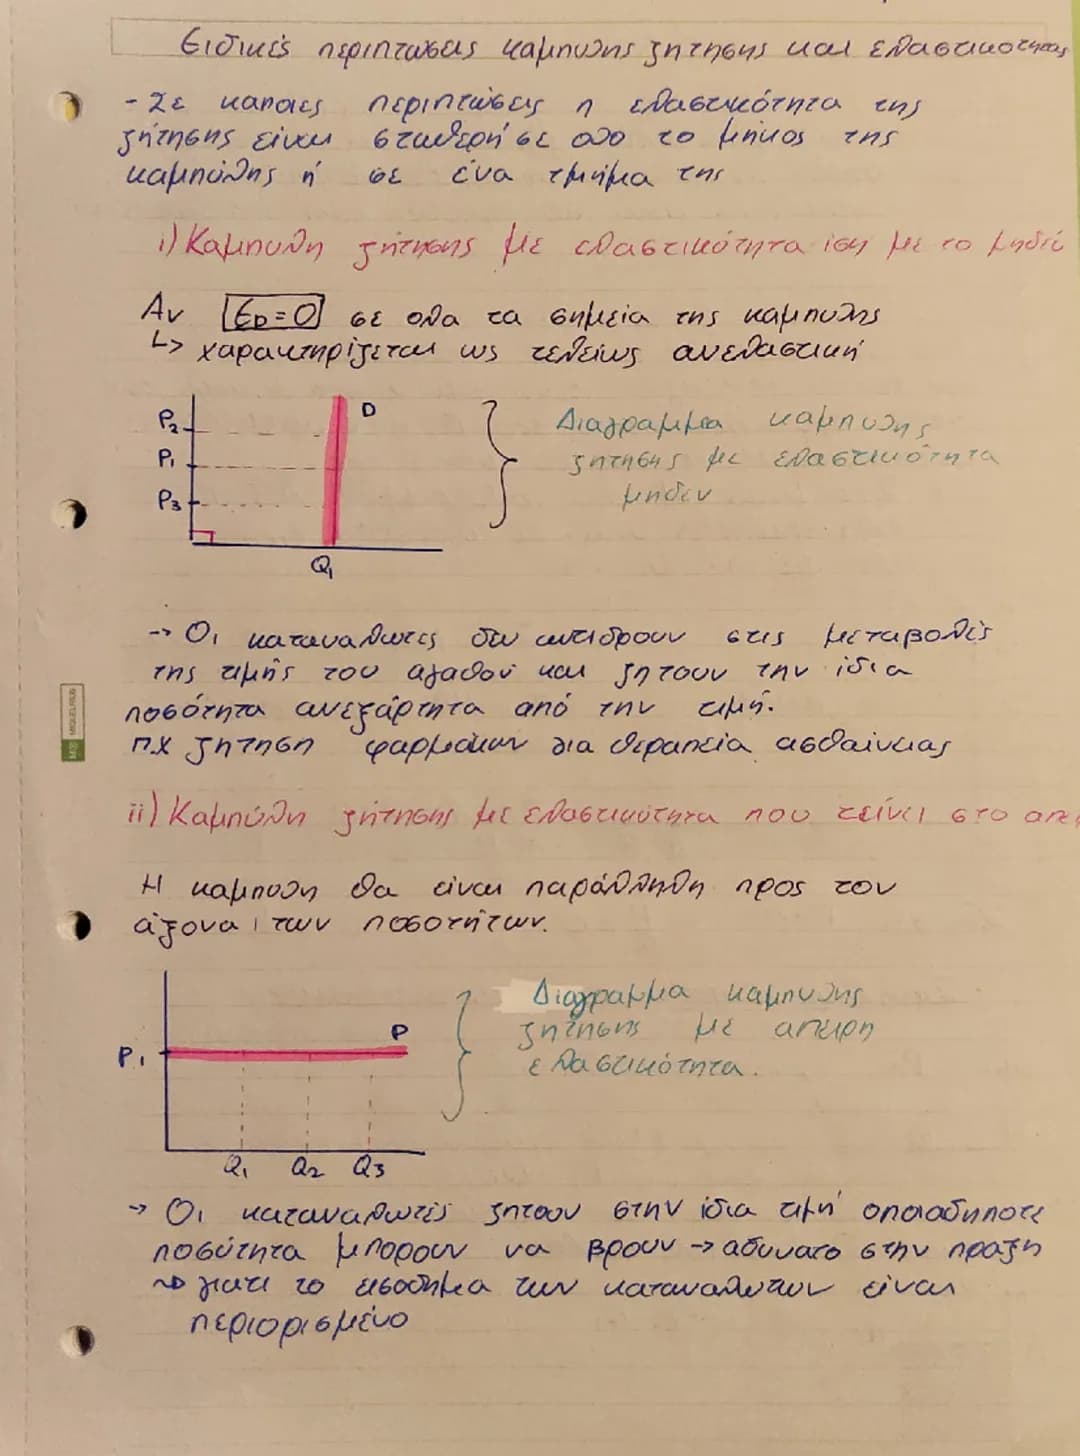 Ειδικές περιπτώσεις καμπύλης ζήτησης και ελαστικότητας
- Σε κάποιες περιπτώσεις η ελαστικότητα της
ζήτησης είναι σταθερή σε όλο το μήκος της
καμπύλης ή σε ένα τμήμα της
i) Καμπύλη ζήτησης με ελαστικότητα ίση με το μηδέ
Αν ED=0 σε όλα τα σημεία της καμπύλης
↳ χαρακτηρίζεται ως τελείως ανελαστική
P2
D
P1
P3
Q1
Διαγραμμα καμπυλης
ζητησης με ελαστικότητα
μηδεν
→ Οι καταναλωτες δεν αντιδρουν στις μεταβολές
της τιμής του αγαθού και ζητουν την ίδια
ποσότητα ανεξάρτητα από την τιμή.
π.χ ζητηση φαρμάκων για θεραπεία ασθένειας
ii) Καμπύλη ζήτησης με ελαστικότητα που τείνει στο απε
Η καμπυλη θα είναι παράλληλη προς τον
άξονα των ποσοτήτων.
P1
P
Q1 Q2 Q3
Διαγραμμα καμπυλης
ζητησης με απειρη
ελαστικότητα.
→ Οι καταναλωτές ζητουν στην ίδια τιμή οποιαδηποτε
ποσότητα μπορουν να βρουν → αδυνατο στην πραξη
→ γιατι το εισοδημα των καταναλωτων είναι
περιορισμένο
MIQUELRIUS